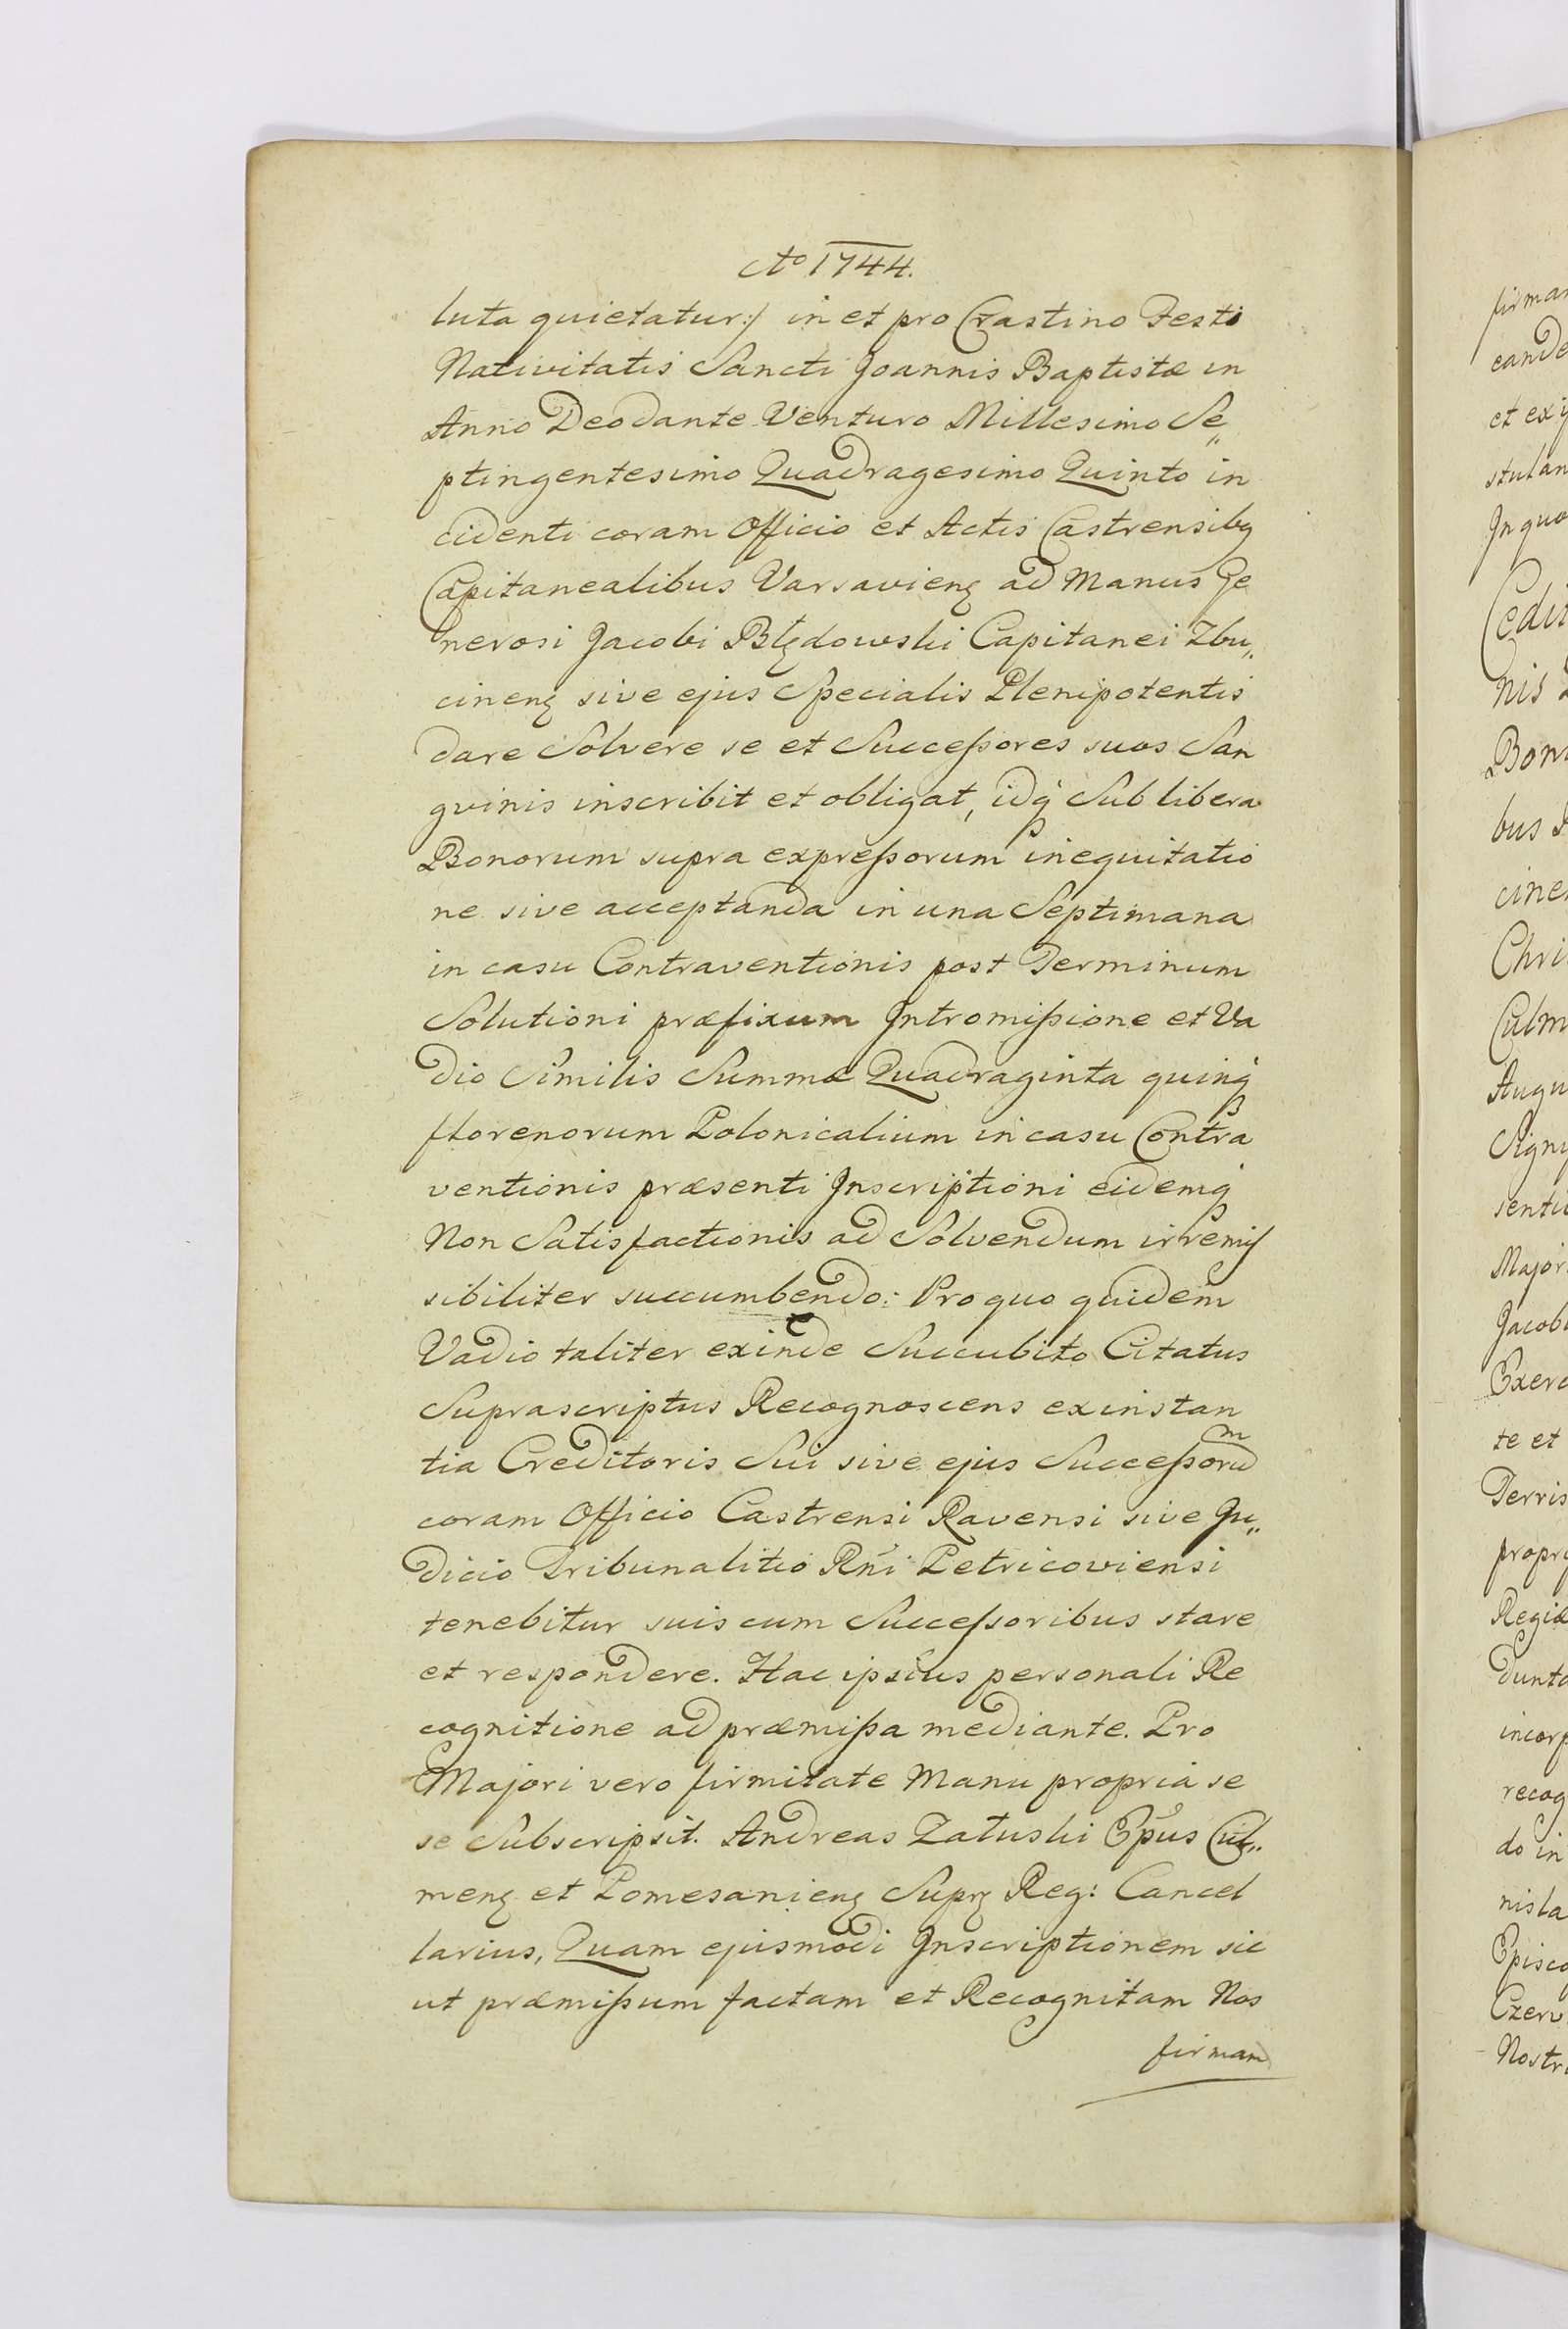 Ao 1744.
luta quietatur:/ in et pro Crastino Festi
Nativitatis Sancti Joannis Baptistæ in
Anno Deo dante Venturo Millesimo Se„
ptingentesimo Quadragesimo Quinto in
cidenti coram Officio et Actis Castrensibq
Capitanealibus Varsavienȝ ad Manus Ge
nerosi Jacobi Błędowski Capitanei Zbu„
cinenȝ sive ejus Specialis Plenipotentis
dare Solvere se et Succeſsores suos San
gvinis inscribit et obligat, idq Sub libera
Bonorum supra expreſsorum inequitatio
ne sive acceptanda in una Septimana
in casu Contraventionis post Terminum
Solutioni præfixum Intromiſsione et Va
dio Similis Summæ Quadraginta quinq
florenorum Polonicalium in casu Contra
ventionis præsenti Inscriptioni eidemq
Non Satisfactionis ad Solvendum irremiſ
sibiliter succumbendo: Pro quo quidem
Vadio taliter exinde Succubito Citatus
Suprascriptus Recognoscens ex instan
tia Creditoris Sui sive ejus Succeſsorum
coram Officio Castrensi Ravensi sive Ju„
dicio Tribunalitio Rñi Petricoviensi
tenebitur suis cum Succeſsoribus stare
et respondere. Hac ipsius personali Re
cognitione ad præmiſsa mediante. Pro
Majori vero firmitate Manu propria se
se Subscripsit. Andreas Załuski Epus Cul„
menȝ et Pomesanienȝ Supȝ Reg: Cancel
larius, Quam ejusmodi Inscriptionem sic
ut præmiſsum factam et Recognitam Nos
firman
firman
cande
et ex
stulan
In quo
Cedit
nis
Bon
bus
cine
Chri
Culm
Augu
Sign
senti
Major
Jacob
Exerc
te et
Terris
propr
Regiæ
dunt
incorp
recog
do in
nisla
Episco
Czerv
Nostr